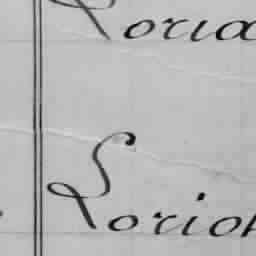 Loria
Lorio